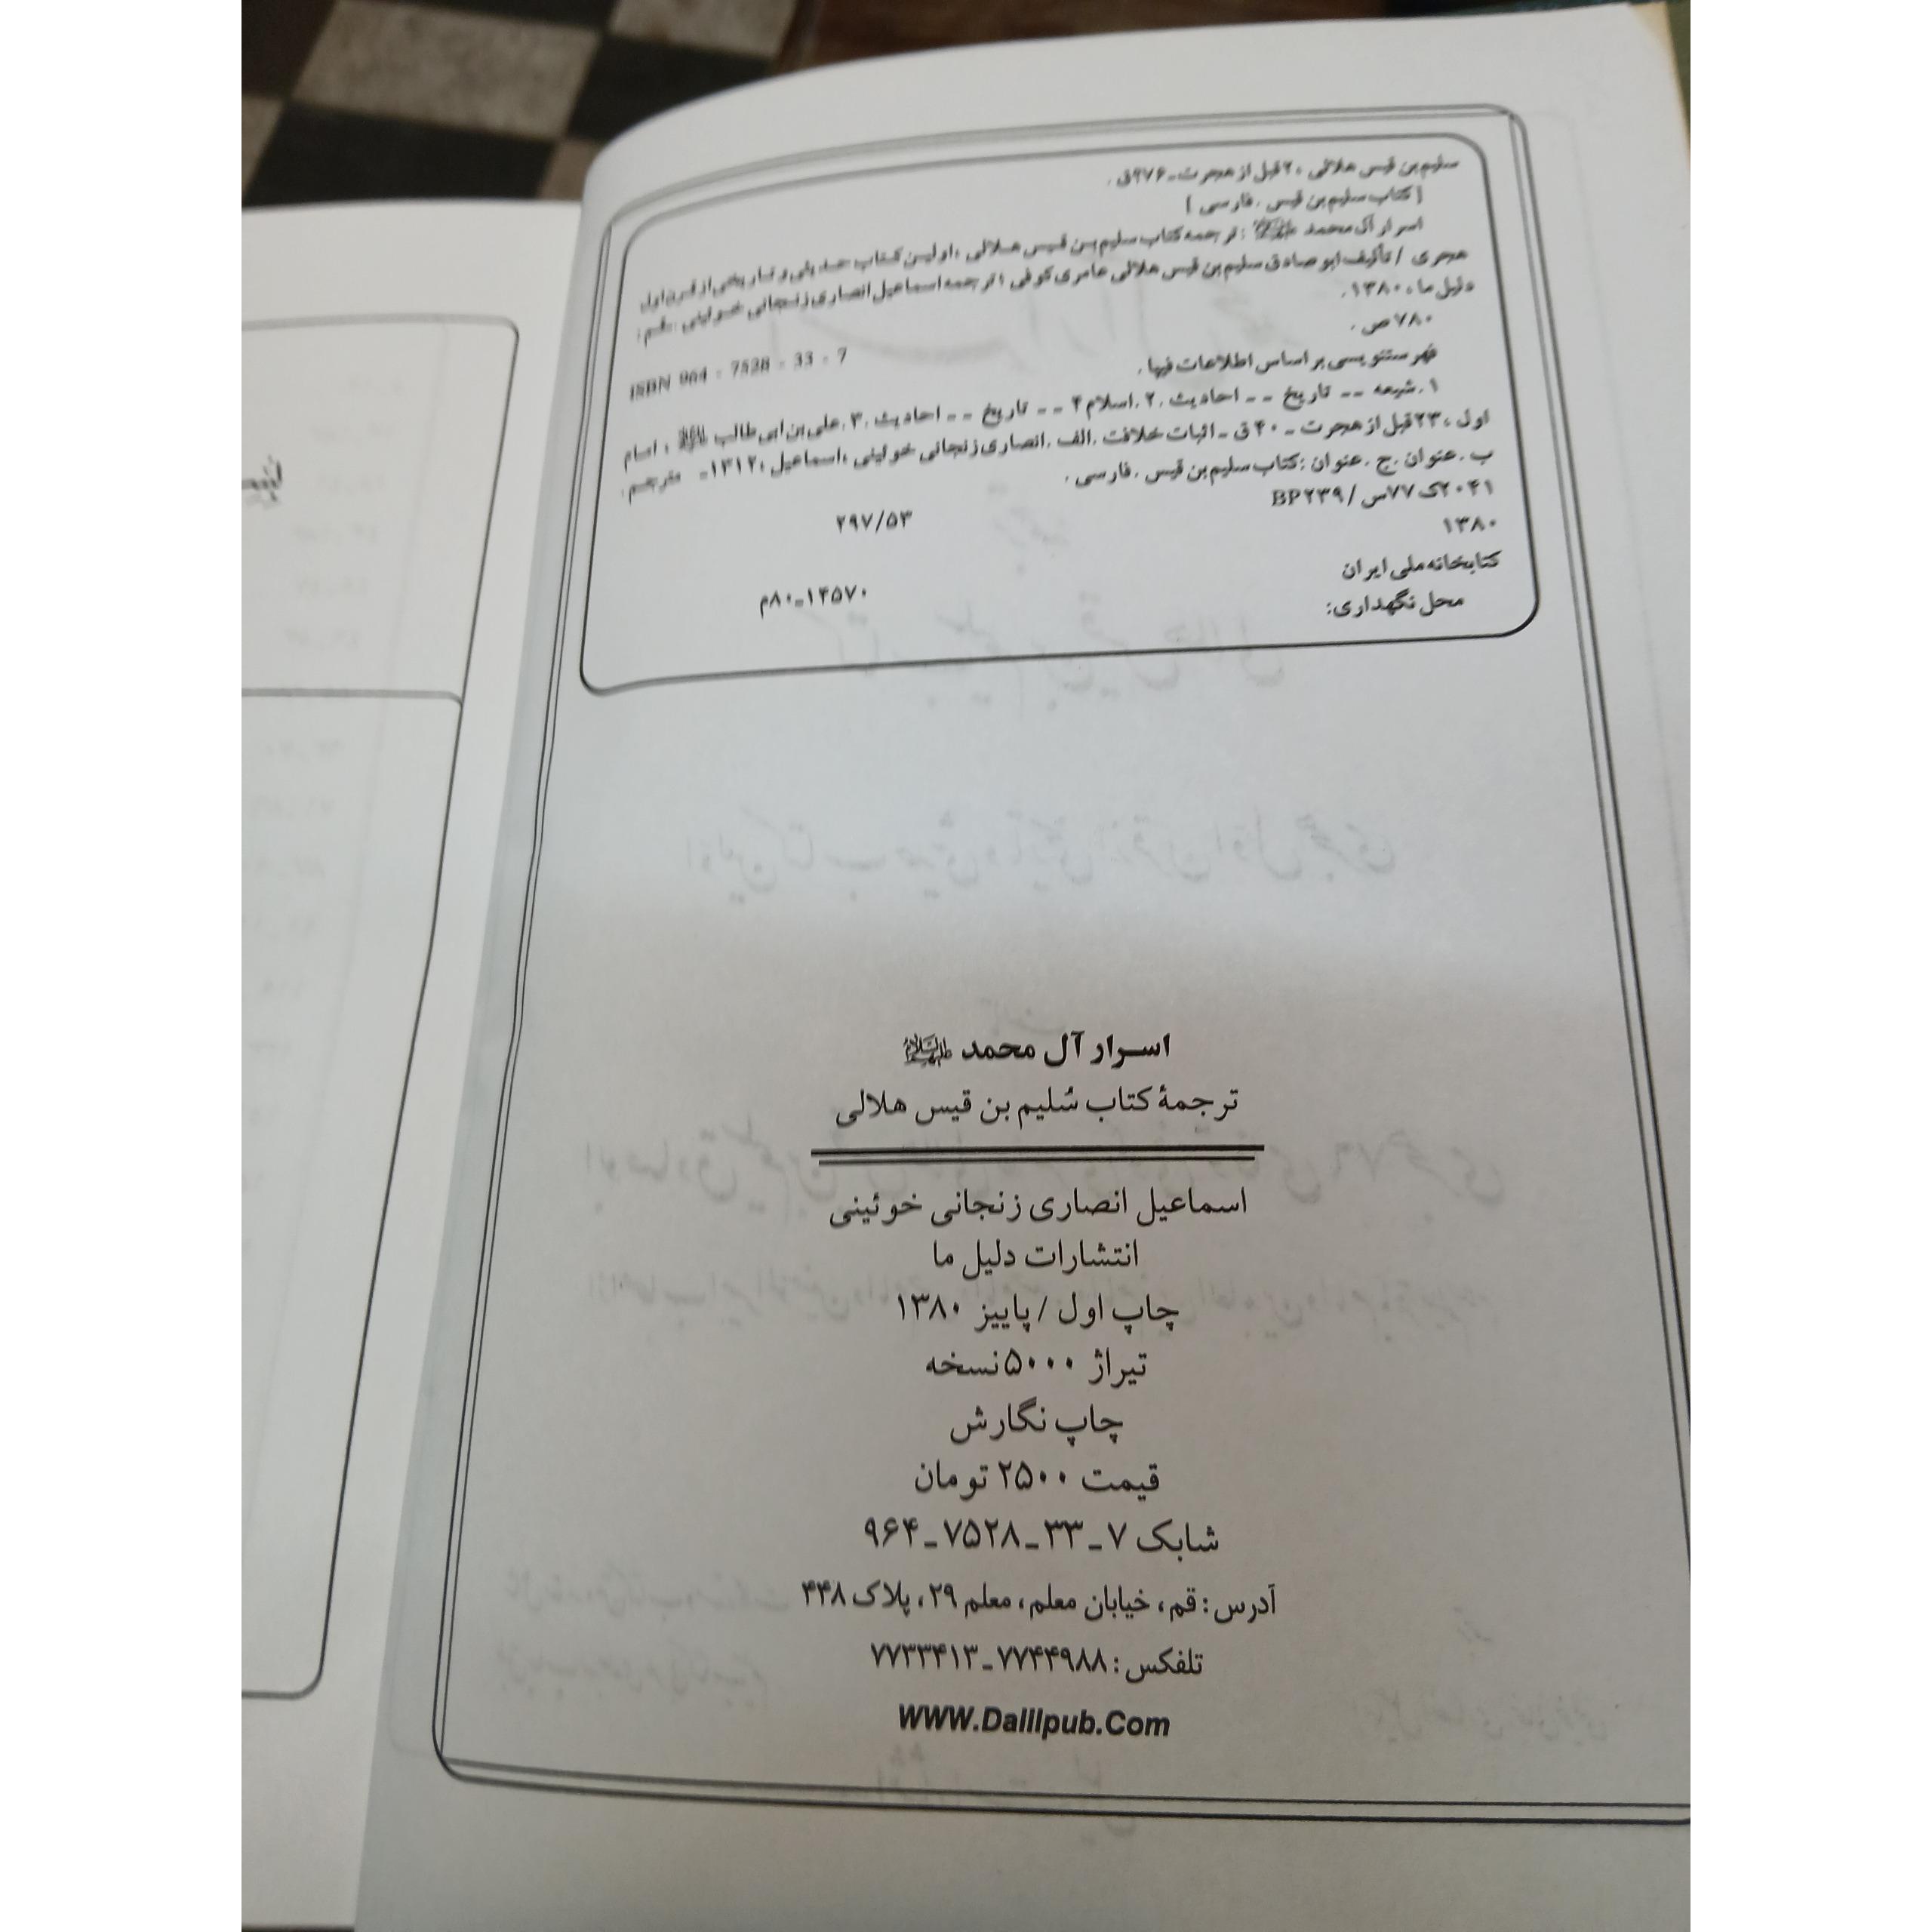 سلیم بن قیس هلالی، ۲ قبل از هجرت ـ ۹۷۶ق.
[کتاب سلیم بن قیس. فارسی]
اسرار آل محمد علیهم‌السلام: ترجمه کتاب سلیم بن قیس هلالی، اولین کتاب حدیثی و تاریخی از قرن اول
هجری / تألیف ابو صادق سلیم بن قیس هلالی عامری کوفی؛ ترجمه اسماعیل انصاری زنجانی خوئینی. ـ قم:
دلیل ما، ۱۳۸۰.
۷۸۰ ص.
ISBN 964 - 7528 - 33 - 7
فهرستنویسی بر اساس اطلاعات فیپا.
۱. شیعه -- تاریخ -- احادیث. ۲. اسلام -- تاریخ -- احادیث. ۳. علی بن ابی طالب، امام
اول، ۲۳ قبل از هجرت ـ ۴۰ق ـ اثبات خلافت. الف. انصاری زنجانی خوئینی، اسماعیل، ۱۳۱۲ـ مترجم.
ب. عنوان. ج. عنوان: کتاب سلیم بن قیس. فارسی.
۲۰۴۱ک۷۷س / BP۲۳۹
۲۹۷/۵۳
۱۳۸۰
کتابخانه ملی ایران
۱۴۵۷۰ـ۸۰م
محل نگهداری:
اسرار آل محمد علیهم‌السلام
ترجمهٔ کتاب سُلیم بن قیس هلالی
اسماعیل انصاری زنجانی خوئینی
انتشارات دلیل ما
چاپ اول / پاییز ۱۳۸۰
تیراژ ۵۰۰۰ نسخه
چاپ نگارش
قیمت ۲۵۰۰ تومان
شابک ۷ـ۳۳ـ۷۵۲۸ـ۹۶۴
آدرس: قم، خیابان معلم، معلم ۲۹، پلاک ۴۴۸
تلفکس: ۷۷۴۴۹۸۸ـ۷۷۳۳۴۱۳
WWW.Dalilpub.Com